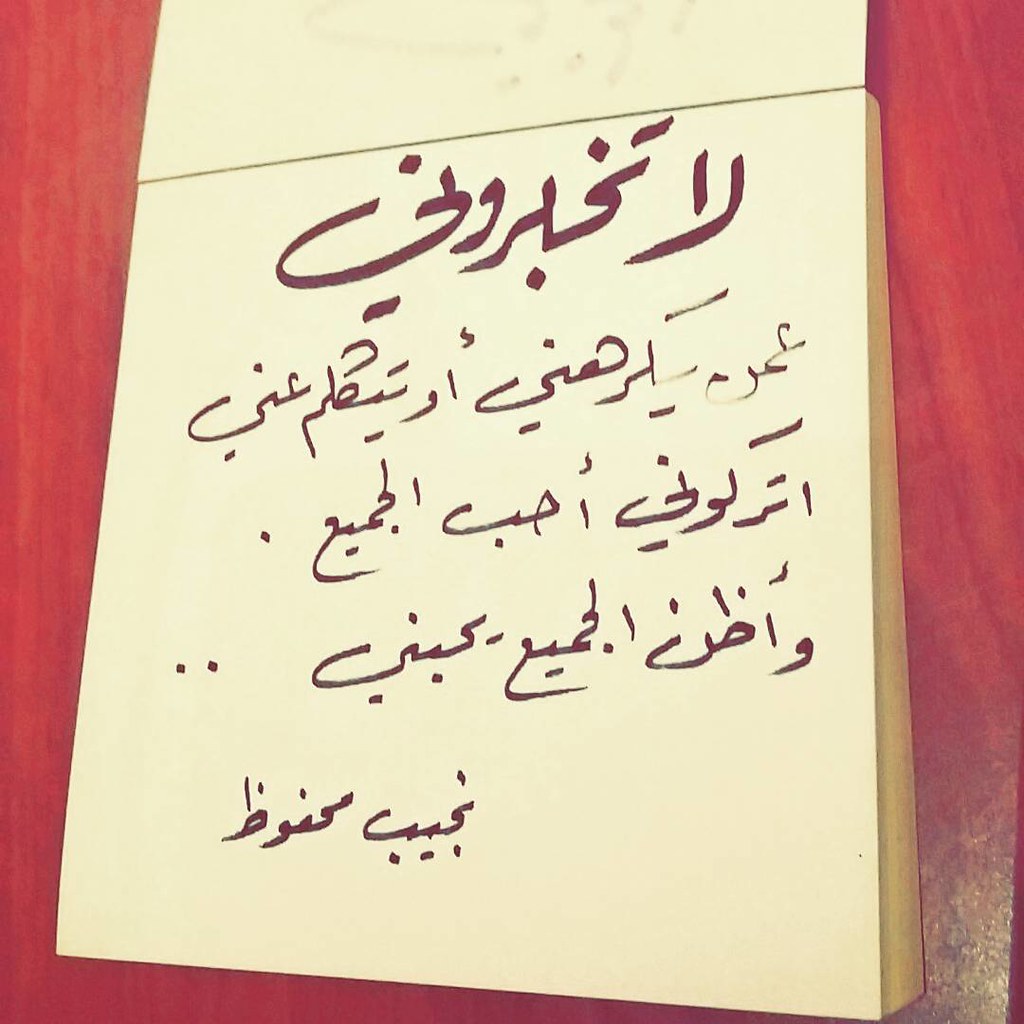 لا تخبروني
عمن يكرهني أو يتكلم عني
اتركوني أحب الجميع .
وأظن الجميع يحبني ..
نجيب محفوظ